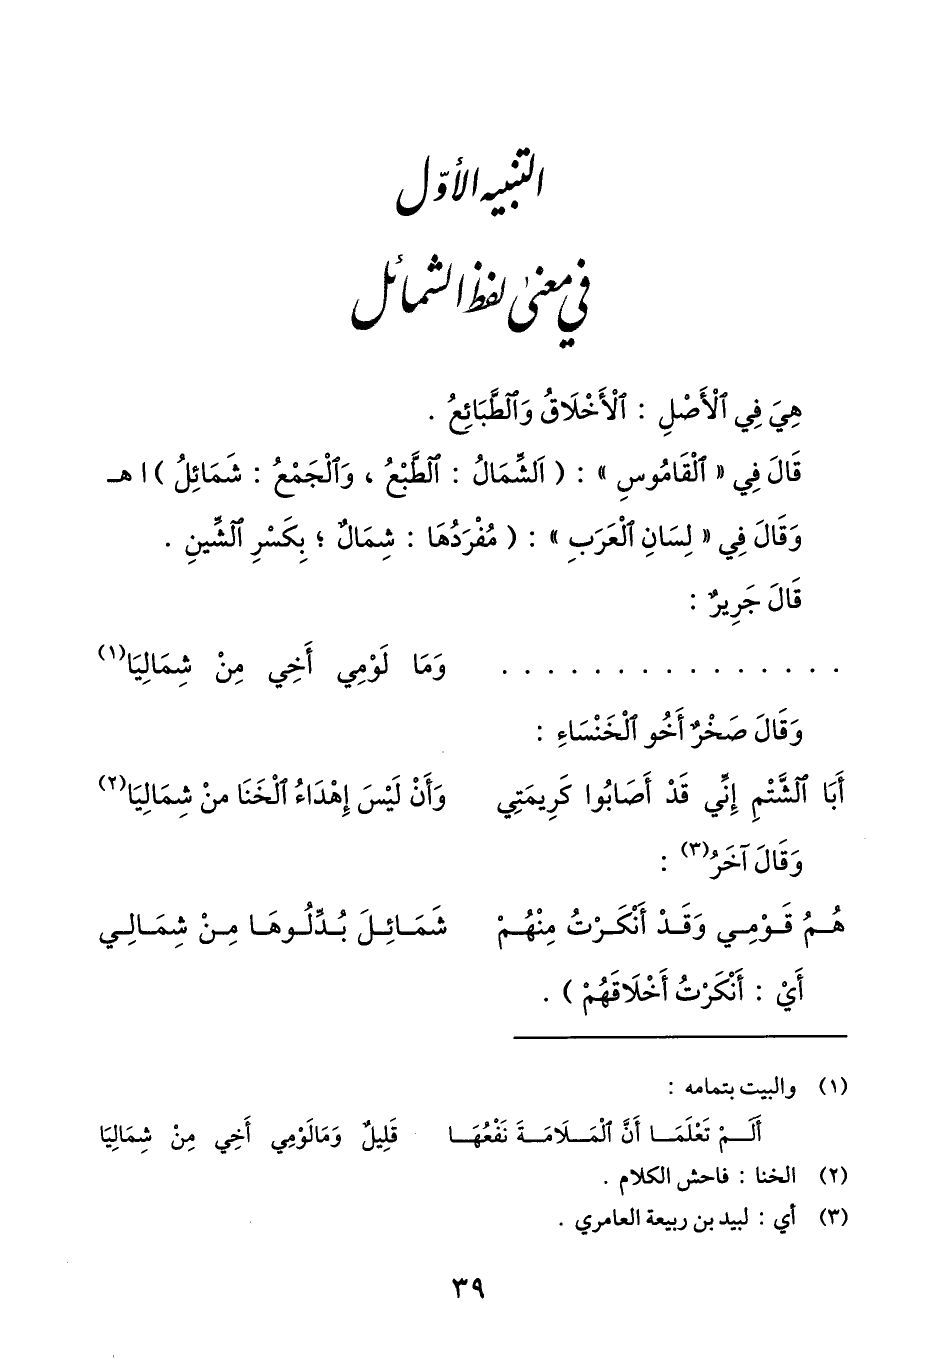 التنبيه الأوّل
في معنىٰ لفظ الشمائل
هِيَ فِي ٱلْأَصْلِ : ٱلْأَخْلَاقُ وَٱلطَّبَائِعُ .
قَالَ فِي « ٱلْقَامُوسِ » : ( اَلشِّمَالُ : ٱلطَّبْعُ ، وَٱلْجَمْعُ : شَمَائِلُ ) ا هـ
وَقَالَ فِي « لِسَانِ ٱلْعَرَبِ » : ( مُفْرَدُهَا : شِمَالٌ ؛ بِكَسْرِ ٱلشِّينِ .
قَالَ جَرِيرٌ :
. . . . . . . . . . . . . . . وَمَا لَوْمِي أَخِي مِنْ شِمَالِيَا(١)
وَقَالَ صَخْرٌ أَخُو ٱلْخَنْسَاءِ :
أَبَا ٱلشَّتْمِ إِنِّي قَدْ أَصَابُوا كَرِيمَتِي وَأَنْ لَيْسَ إِهْدَاءُ ٱلْخَنَا منْ شِمَالِيَا(٢)
وَقَالَ آخَرُ(٣) :
هُـمُ قَـوْمِـي وَقَـدْ أَنْكَـرْتُ مِنْهُـمْ شَمَـائِـلَ بُـدِّلُـوهَـا مِـنْ شِمَـالِـي
أَيْ : أَنْكَرْتُ أَخْلَاقَهُمْ ) .
(١) والبيت بتمامه :
أَلَـمْ تَعْلَمَـا أَنَّ ٱلْمَـلَامَـةَ نَفْعُهَـا قَلِيلٌ وَمَالَوْمِي أَخِي مِنْ شِمَالِيَا
(٢) الخنا : فاحش الكلام .
(٣) أي : لبيد بن ربيعة العامري .
٣٩